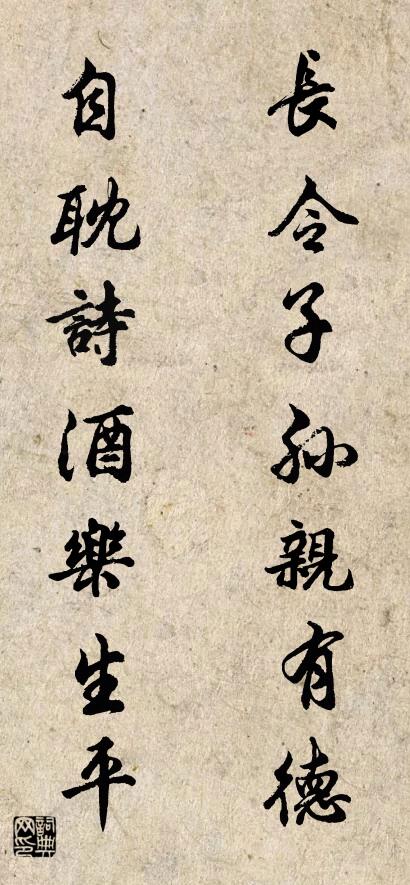 長令子孫親有德
自耽詩酒樂生平
詞典网印